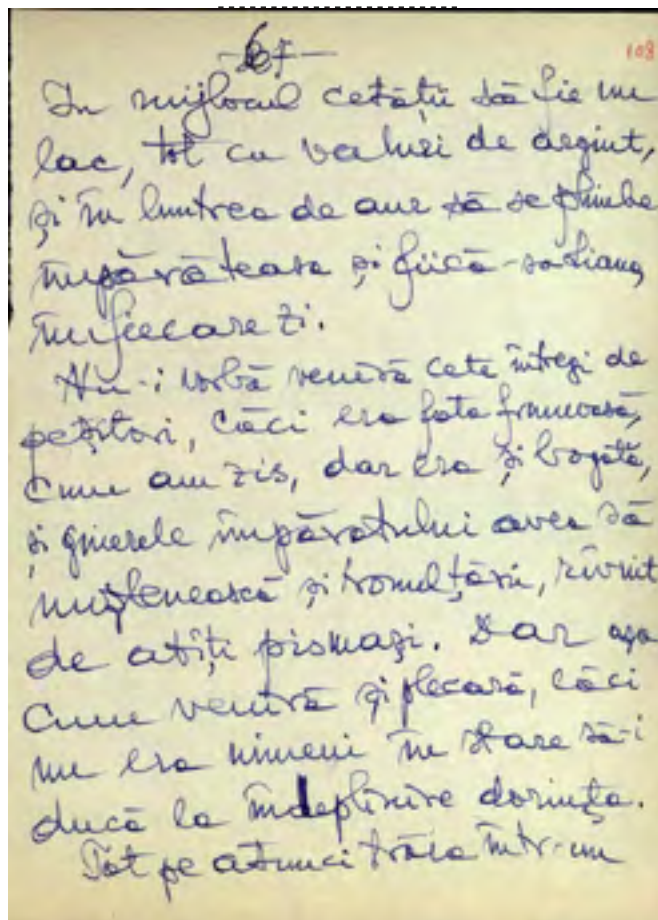 108
In mijlocul cetății să fie un
lac, tot cu valuri de argint,
și în luntrea de aur să se plimbe
împărăteasa și fiică-sa Liana,
în fiecare zi.
Nu-i vorbă veniră cete întregi de
pețitori, căci era fata frumoasă,
cum am zis, dar era și bogată,
și ginerele împăratului avea să
moștenească și tronul țării, rîvnit
de atîți pismași. Dar așa
cum veniră și plecară, căci
nu era nimeni în stare să-i
ducă la îndeplinire dorința.
Tot pe atunci trăia într-un